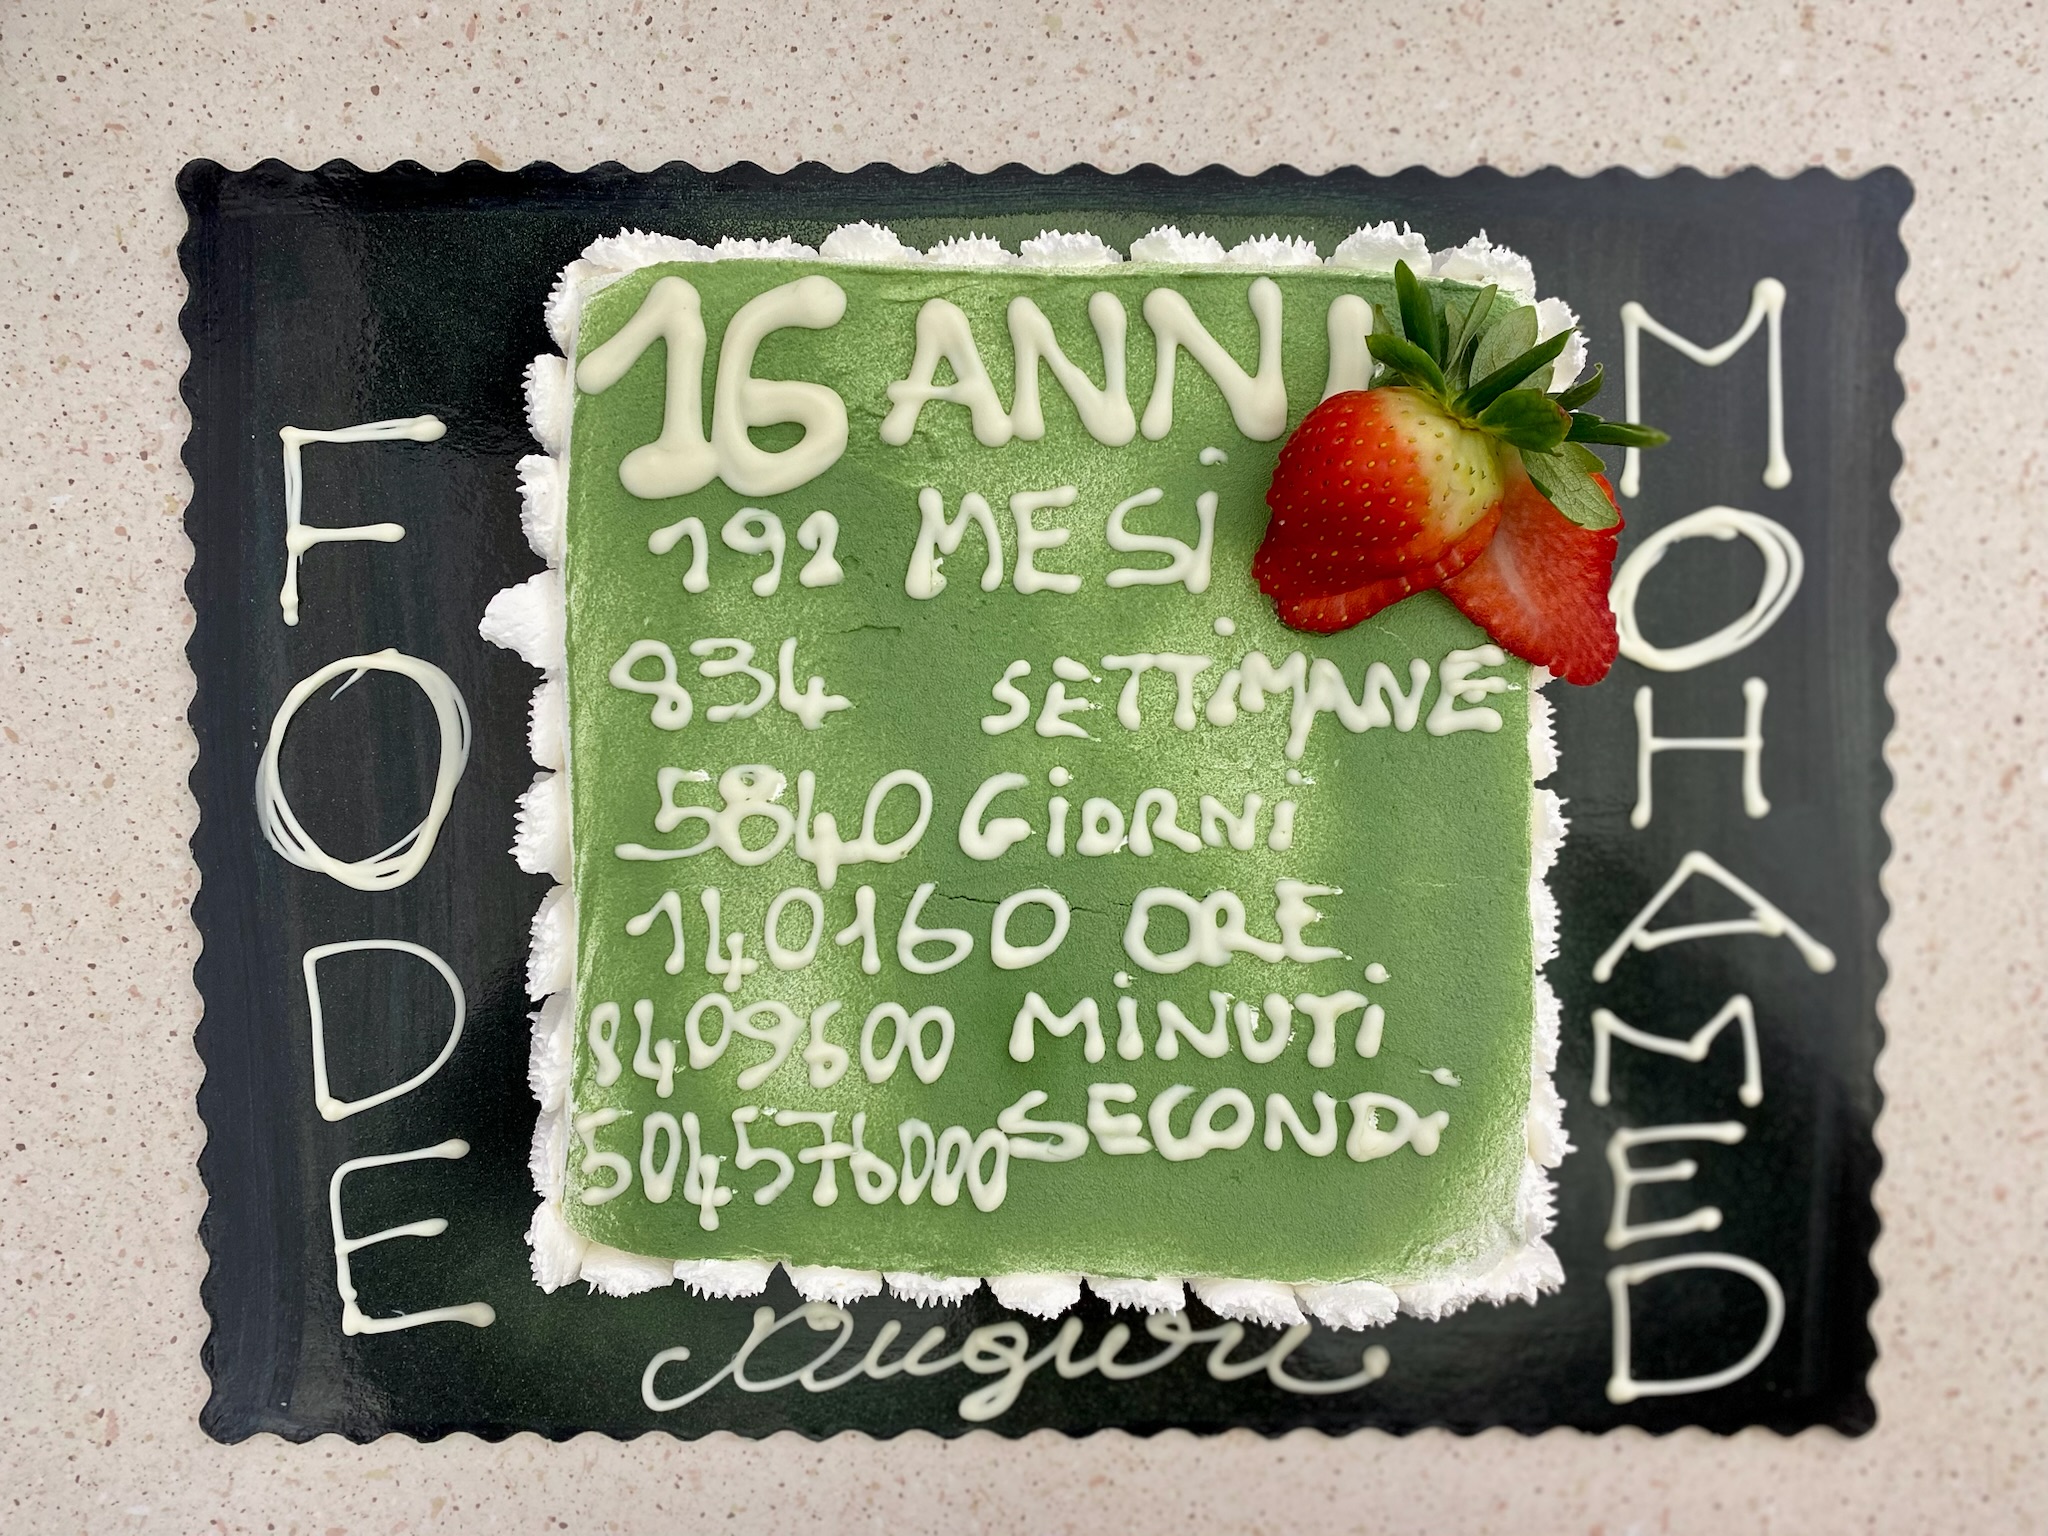 FODE
16 ANNI
192 MESi
834 SETTiMANE
5840 GiORNi
140160 ORE
8409600 MiNUTi
504576000 SECONDi
Auguri
MOHAMED